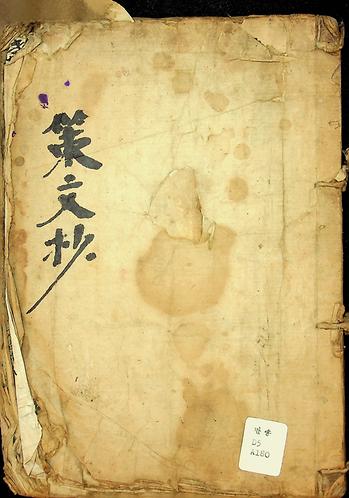 策文抄
D5
A180